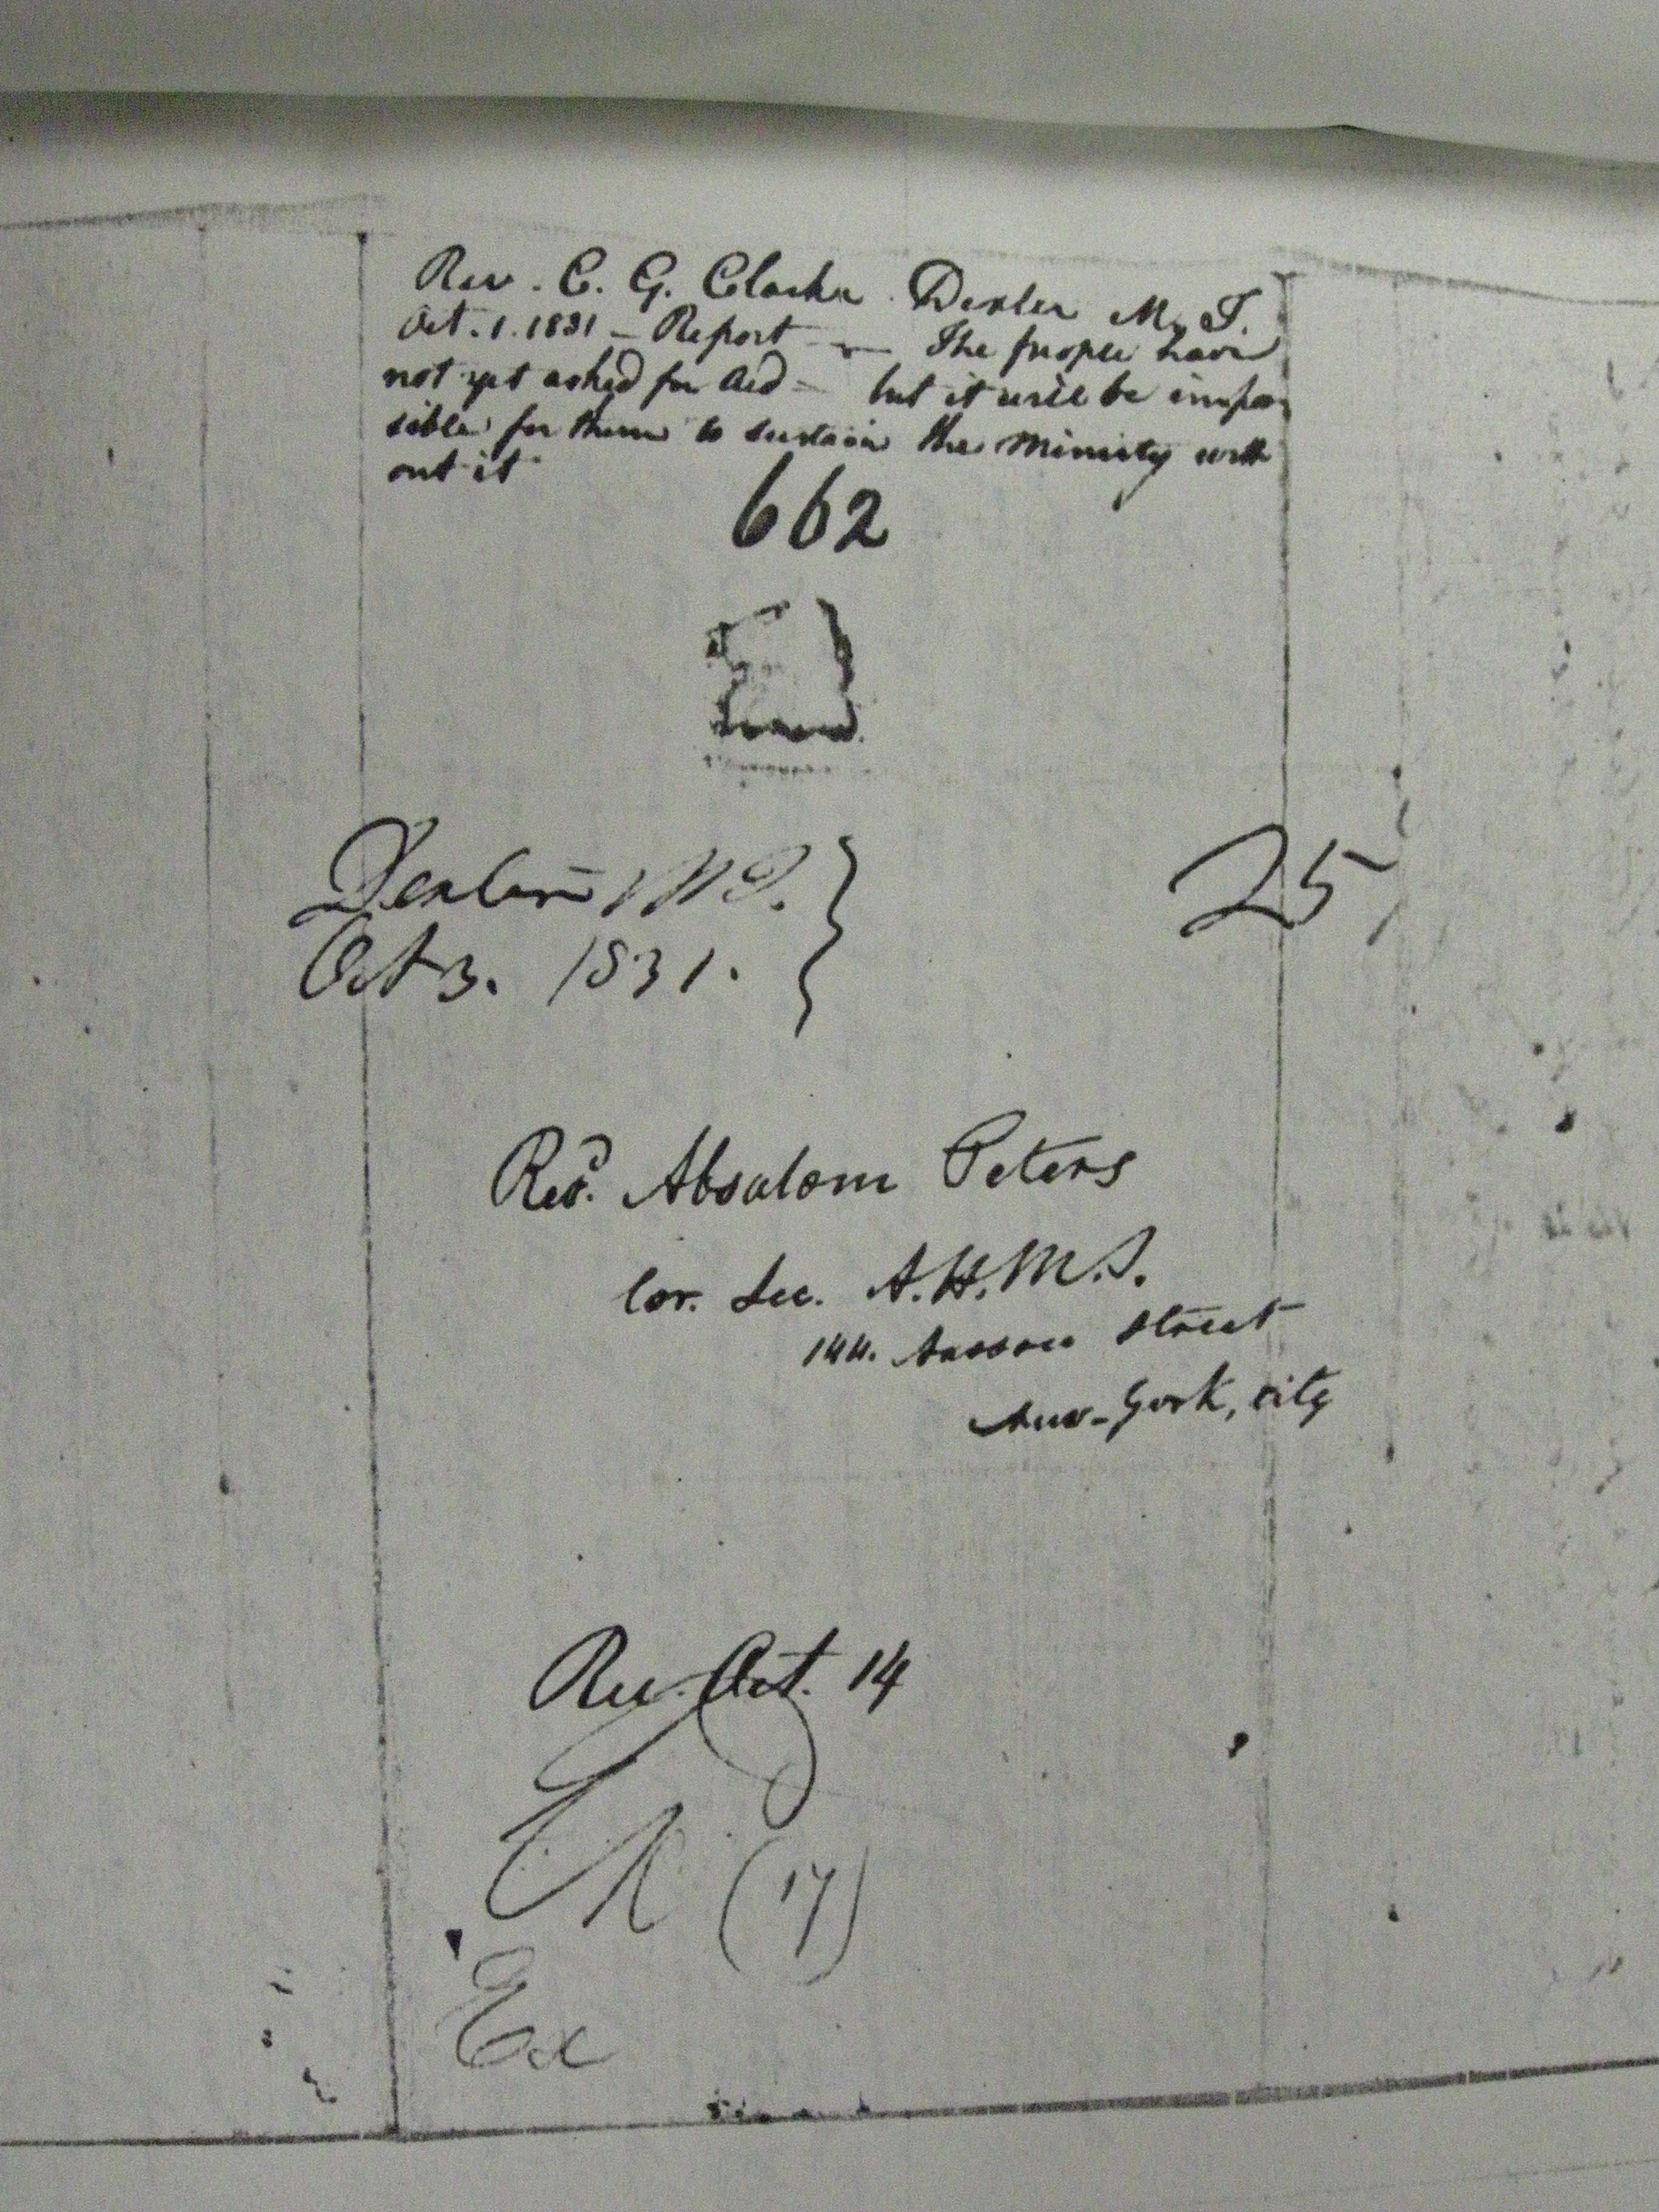 Rev. C. G. Clarke. Dexter M. T.
Oct. 1. 1831 – Report — The people have
not yet asked for aid – but it will be impos
sible for them to sustain the ministry with
out it
662
Dexter M T.
Oct 3. 1831.
25
Revd. Absalom Peters
Cor. Sec. A.H.M.S.
144. Nassau Street
New-York, city
Rec. Oct. 14
(17)
Ex